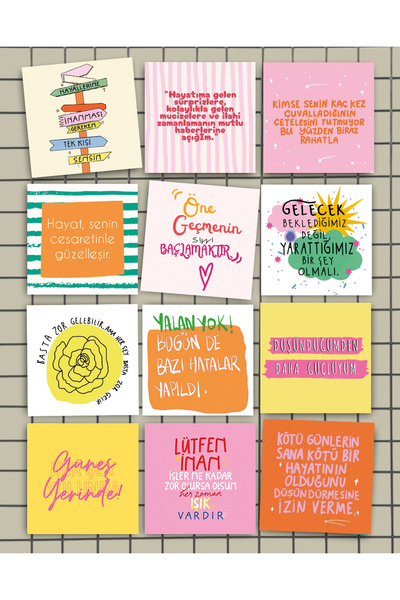 HAYALLERİNE
İNANMASI
GEREKEN
TEK KİŞİ
SENSİN
"Hayatıma gelen
sürprizlere,
kolaylıkla gelen
mucizelere ve ilahi
zamanlamanın mutlu
haberlerine
açığım."
KİMSE SENİN KAÇ KEZ
ÇUVALLADIĞININ
ÇETELESİNİ TUTMUYOR
BU YÜZDEN BİRAZ
RAHATLA
Hayat, senin
cesaretinle
güzelleşir.
Öne
Geçmenin
sırrı
BAŞLAMAKTIR
GELECEK
BEKLEDİĞİMİZ
DEĞİL
YARATTIĞIMIZ
BİR ŞEY
OLMALI.
BAŞTA ZOR GELEBİLİR AMA HER ŞEY BAŞTA ZOR GELİR
YALAN YOK!
BUGÜN DE
BAZI HATALAR
YAPILDI.
DÜŞÜNDÜĞÜMDEN
DAHA GÜÇLÜYÜM
Güneş
Yerinde!
LÜTFEN
İNAN
İŞLER NE KADAR
ZOR OLURSA OLSUN
her zaman
IŞIK
VARDIR
KÖTÜ GÜNLERİN
SANA KÖTÜ BİR
HAYATININ
OLDUĞUNU
DÜŞÜNDÜRMESİNE
İZİN VERME.